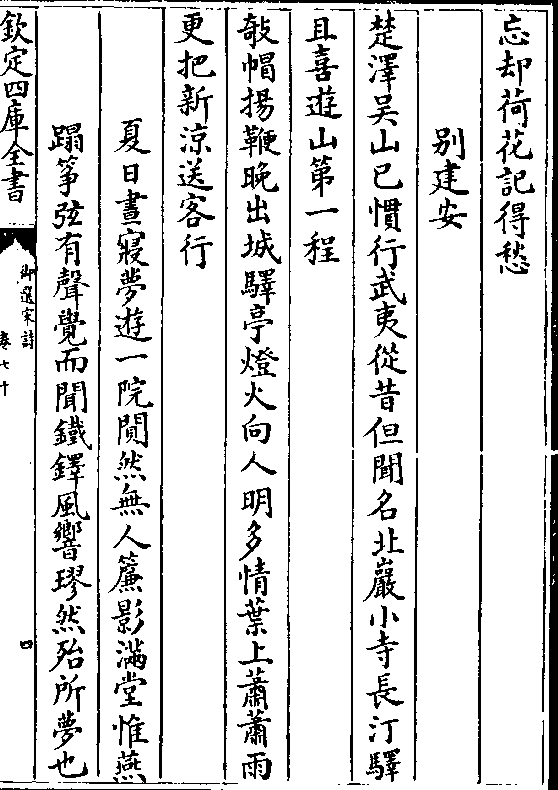 忘却荷花記得愁
别建安
楚澤吴山已慣行武夷從昔但聞名北巖小寺長汀驛
且喜遊山第一程
敧帽揚鞭晚出城驛亭燈火向人明多情葉上蕭蕭雨
更把新涼送客行
夏日晝寢夢遊一院閴然無人簾影滿堂惟燕
蹋筝弦有聲覺而聞鐵鐸風響璆然殆所夢也
欽定四庫全書
御選宋詩
卷七十
四